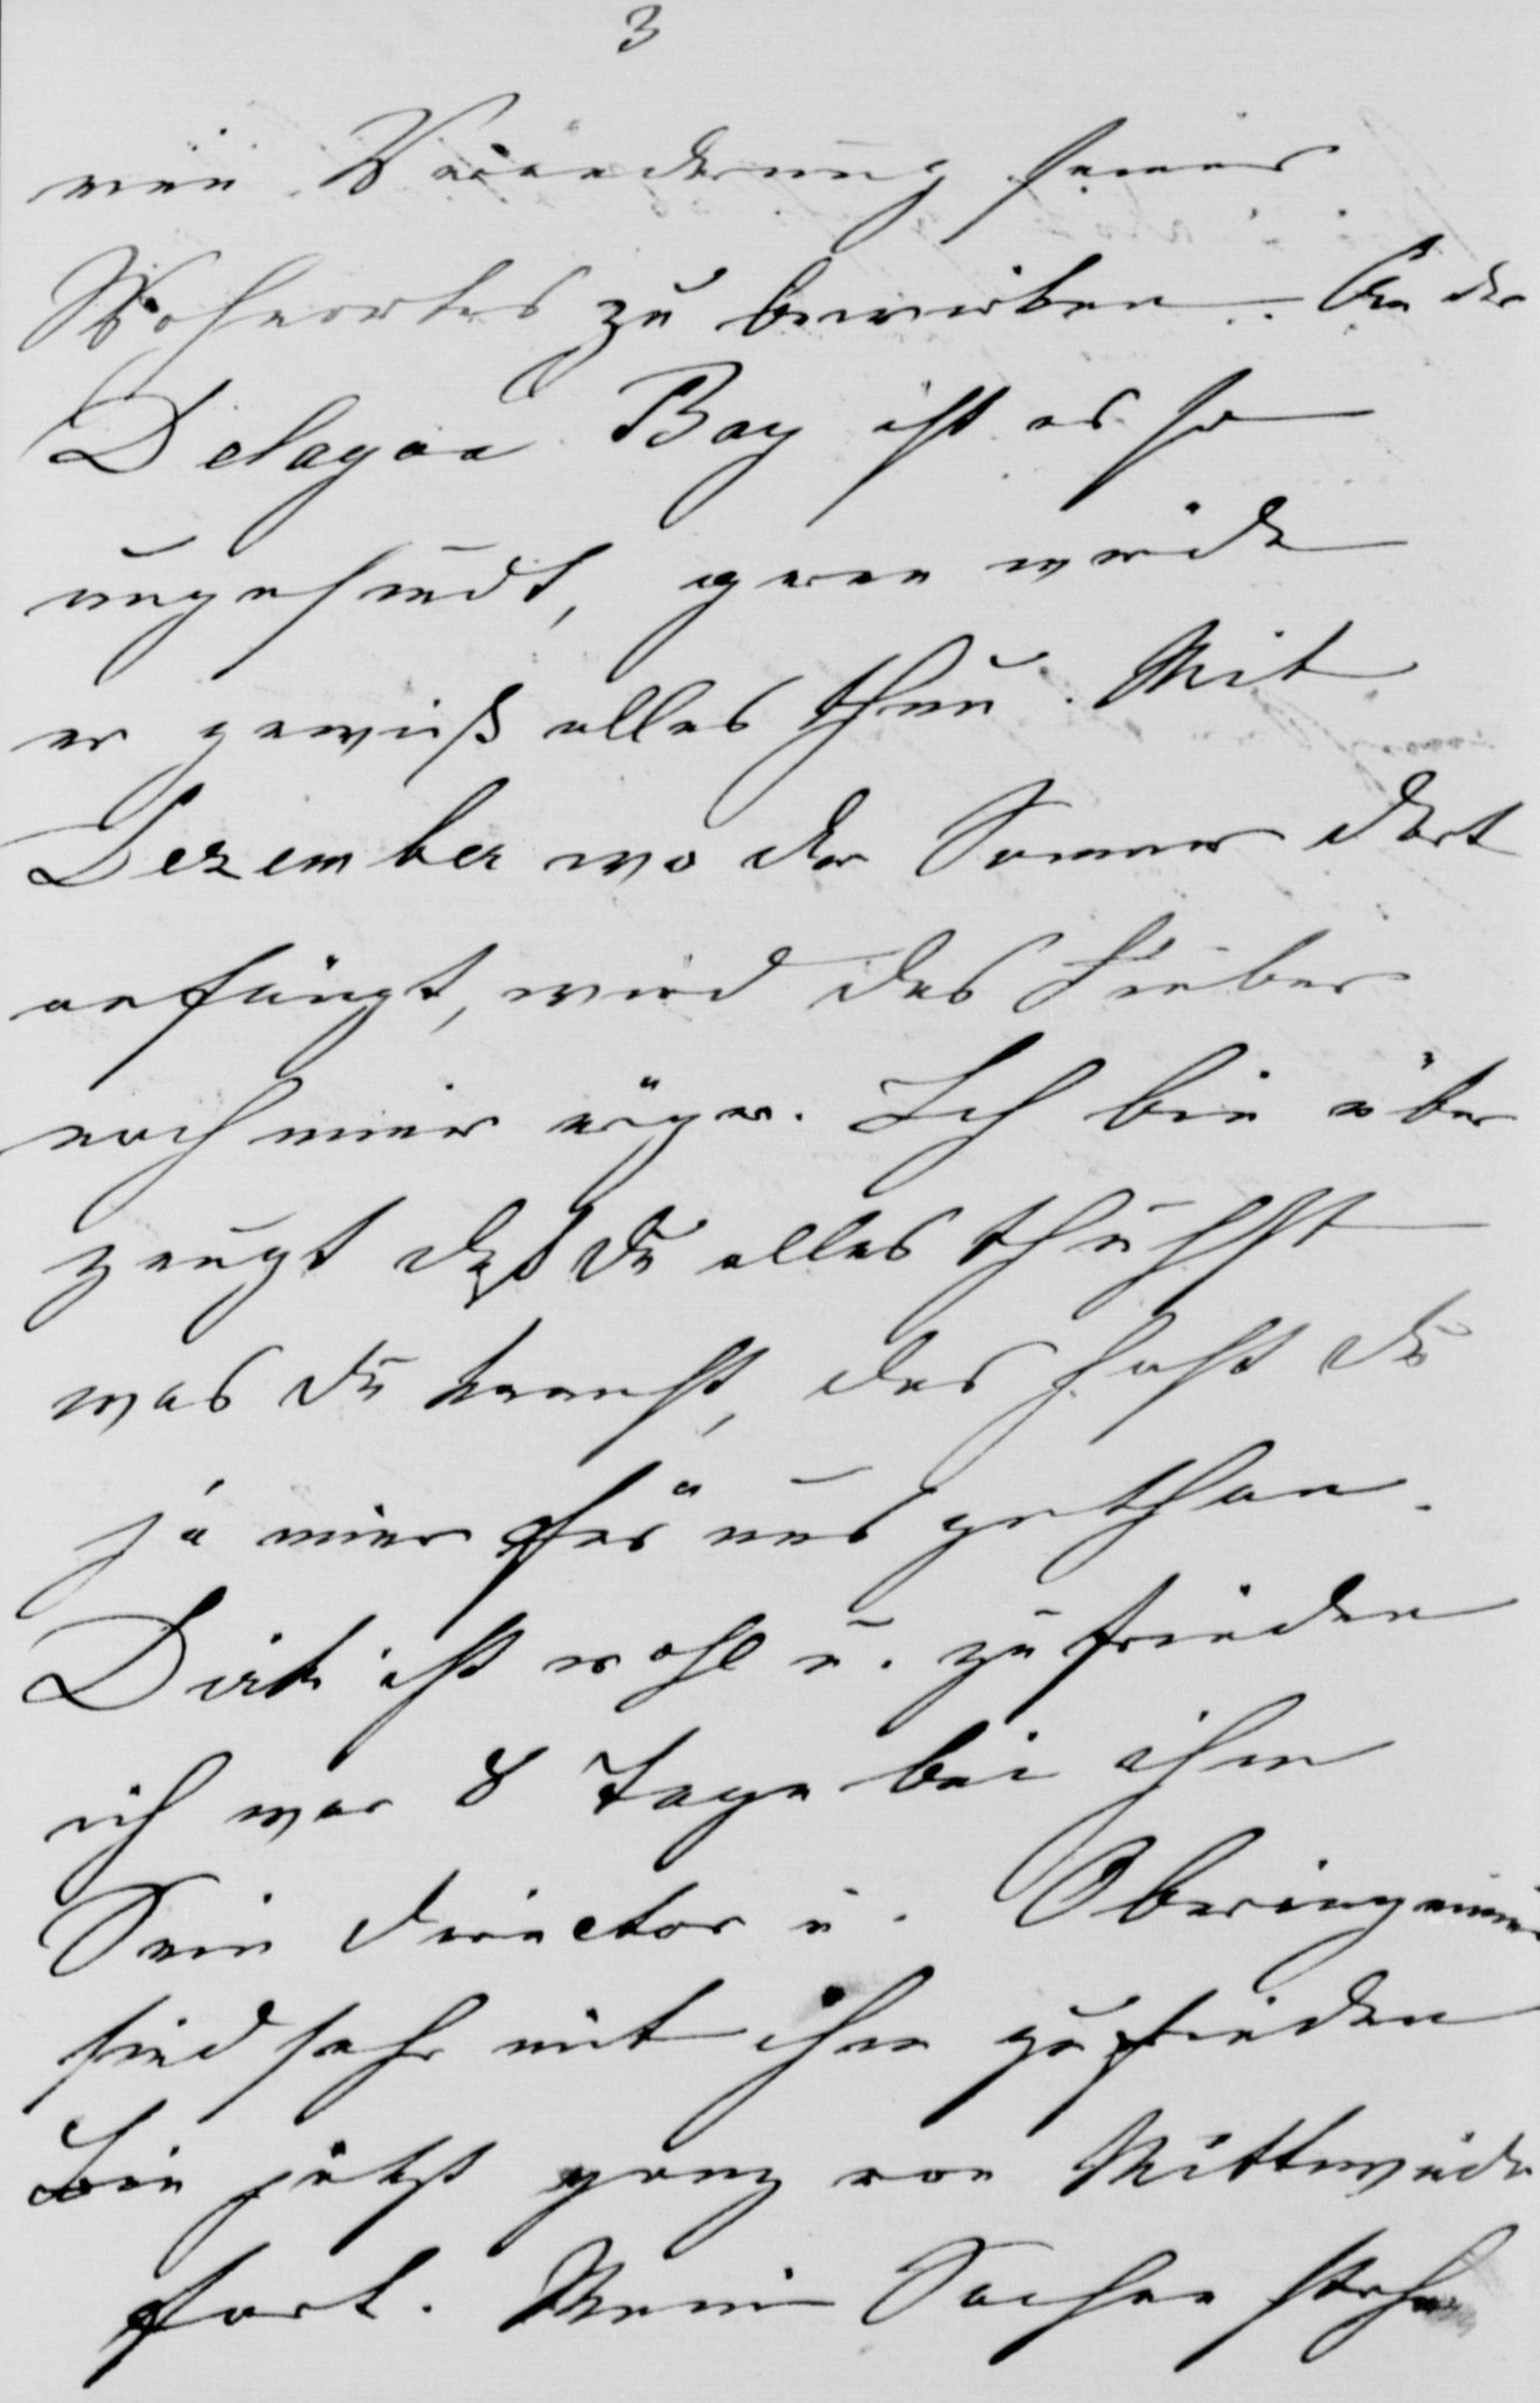 3
eine Veränderung seines
Wohnortes zu bewirken. An der
Delagoa Bay ist es so
ungesund, gern würde
er gewiß alles thun. Mit
Dezember wo der Sommer dort
anfängt, wird das Fieber
noch immer ärger. Ich bin über
zeugt daß Du alles thuhst
was Du kannst, das hast Du
ja immer für uns gethan.
Dirk ist wohl u. zufrieden
ich war 8 Tage bei ihm
Sein Director u. Oberingenieur
sind sehr mit ihm zufrieden
Bin jetzt ganz von Mittweida
fort. Meine Sachen stehen